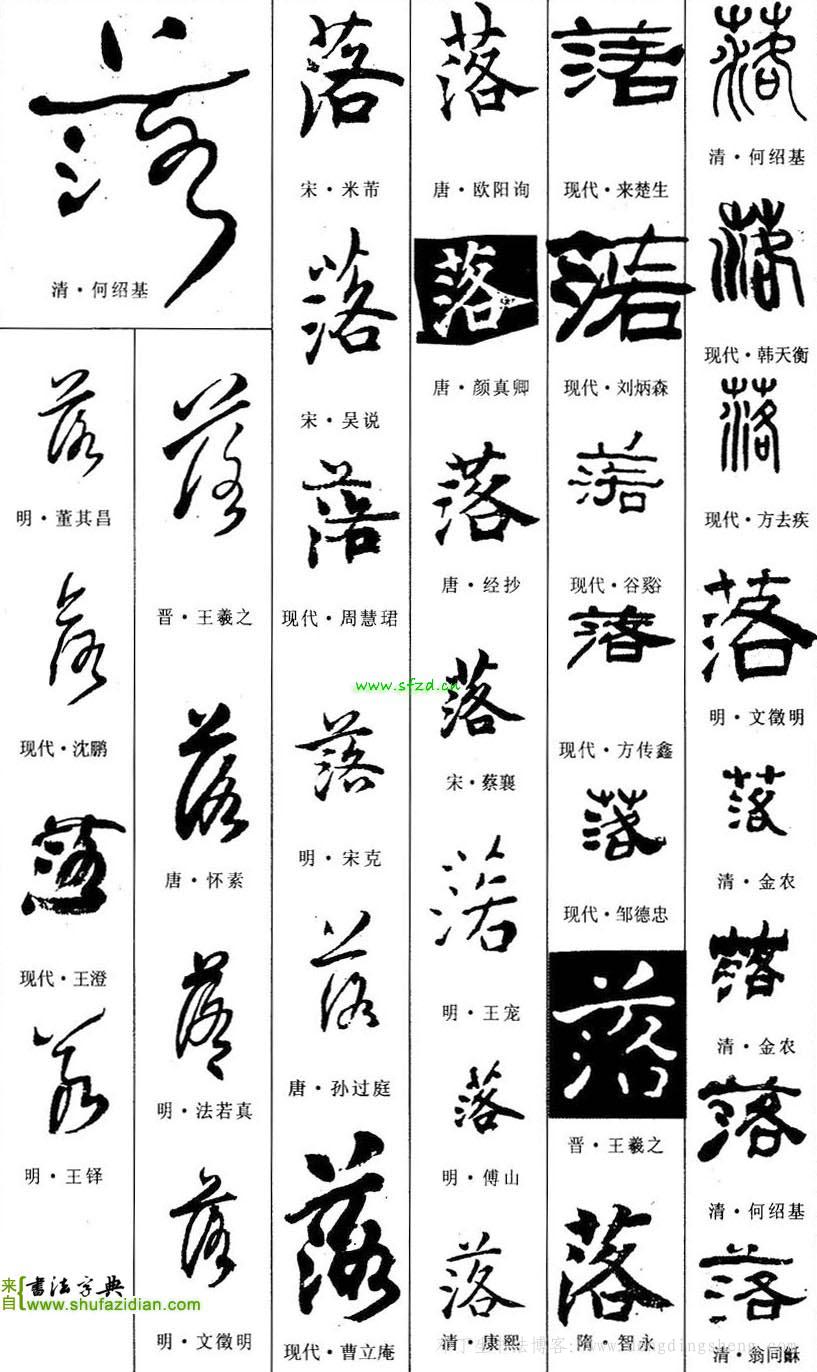 落
清·何绍基
落
现代·韩天衡
落
现代·方去疾
落
明·文徵明
落
清·金农
落
清·金农
落
清·何绍基
落
清·翁同龢
落
现代·来楚生
落
现代·刘炳森
落
现代·谷谿
落
现代·方传鑫
落
现代·邹德忠
落
晋·王羲之
落
隋·智永
落
唐·欧阳询
落
唐·颜真卿
落
唐·经抄
落
宋·蔡襄
落
明·王宠
落
明·傅山
落
清·康熙
落
宋·米芾
落
宋·吴说
落
现代·周慧珺
落
明·宋克
落
唐·孙过庭
落
现代·曹立庵
落
清·何绍基
落
晋·王羲之
落
唐·怀素
落
明·法若真
落
明·文徵明
落
明·董其昌
落
现代·沈鹏
落
现代·王澄
落
明·王铎
www.sfzd.cn
来自
书法字典
www.shufazidian.com